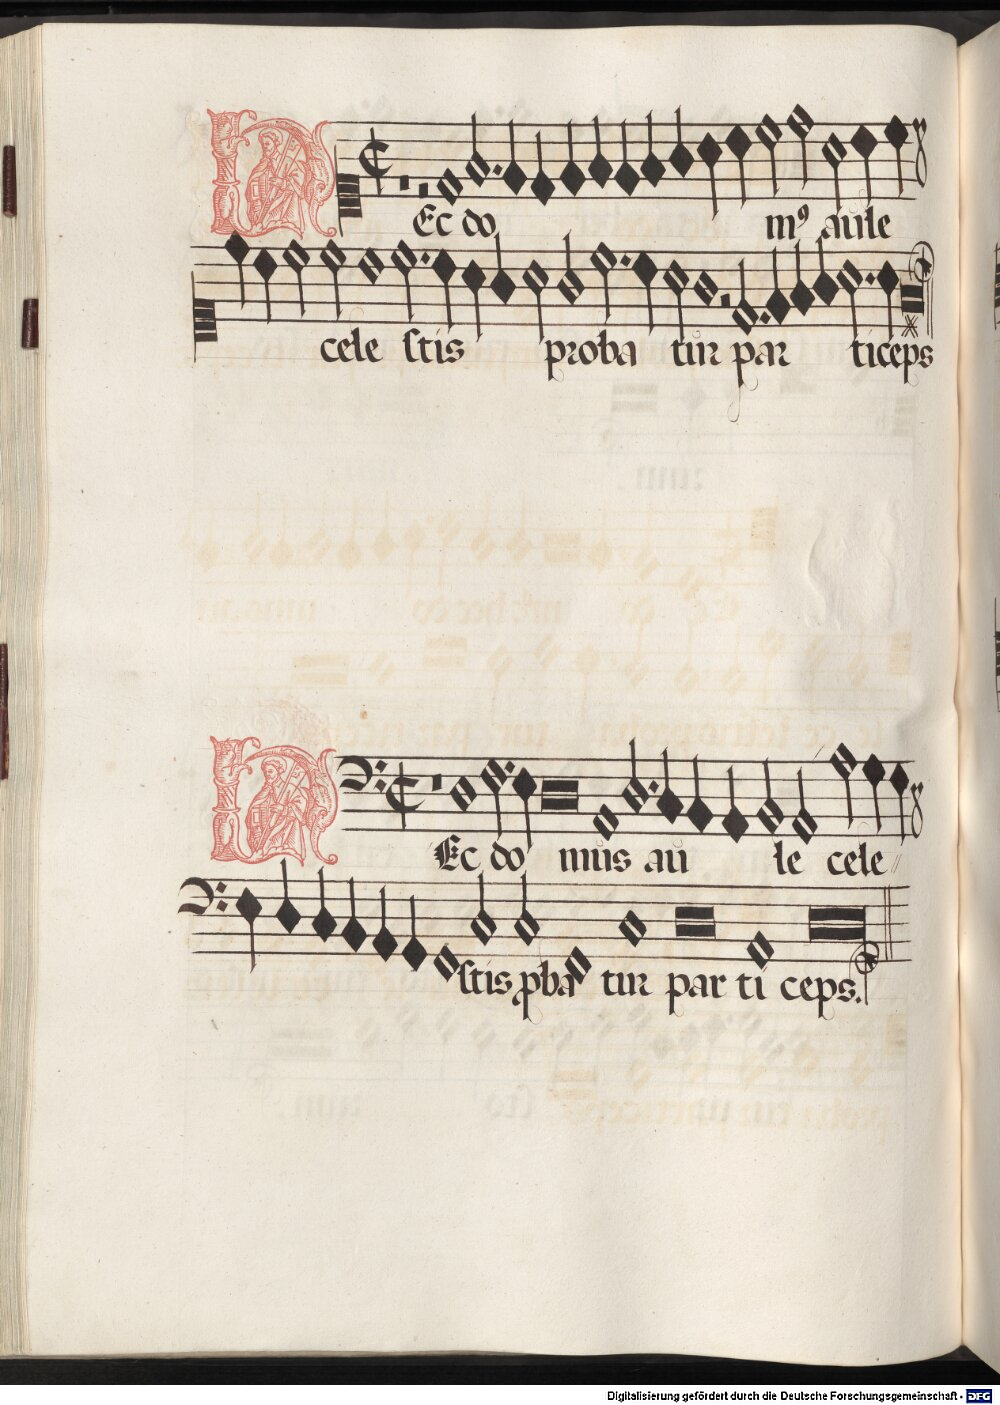 HEc do m⁹ aule
cele stis proba tur par ticeps
HEc do mus au le cele
stis pba tur par ti ceps.
Digitalisierung gefördert durch die Deutsche Forschungsgemeinschaft - DFG